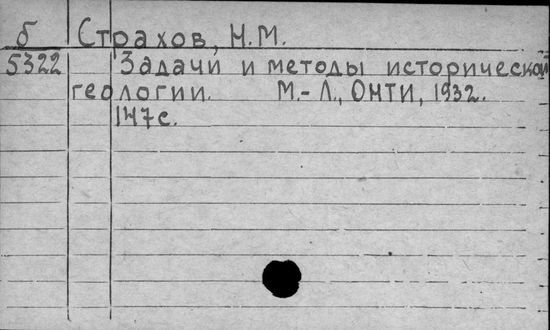 б Страхов, Н.М.
5322 Задачи и методы исторической
геологии. М.-Л., ОНТИ, 1932.
147с.